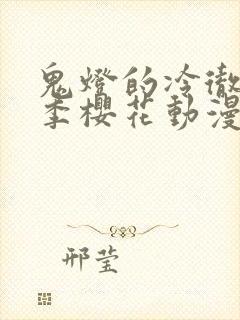 鬼燈的冷徹
季櫻花動漫
邢莹